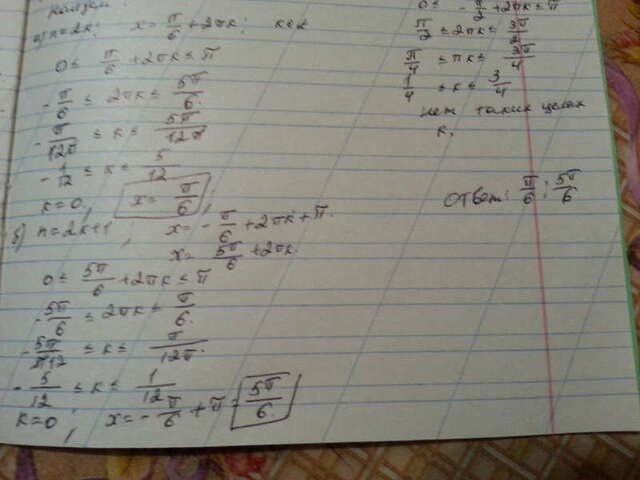 а) n=2k; x= π/6 +2πk; k∈z
0 ≤ π/6 +2πk ≤ π
-π/6 ≤ 2πk ≤ 5π/6.
-π/12π ≤ k ≤ 5π/12π
-1/12 ≤ k ≤ 5/12
k=0, x= π/6;
б) n=2k+1; x= -π/6 +2πk+π.
x= 5π/6 +2πk.
0≤ 5π/6 +2πk ≤ π
-5π/6 ≤ 2πk ≤ π/6.
-5π/π12 ≤ k ≤ π/12π.
-5/12 ≤ k ≤ 1/12
k=0, x= -π/6 +π = 5π/6.
0≤ -π/2 +2πk ≤ π
π/2 ≤ 2πk ≤ 3π/2
π/4 ≤ πk ≤ 3π/4
1/4 ≤ k ≤ 3/4
нет таких целых
k,
Ответ: π/6; 5π/6